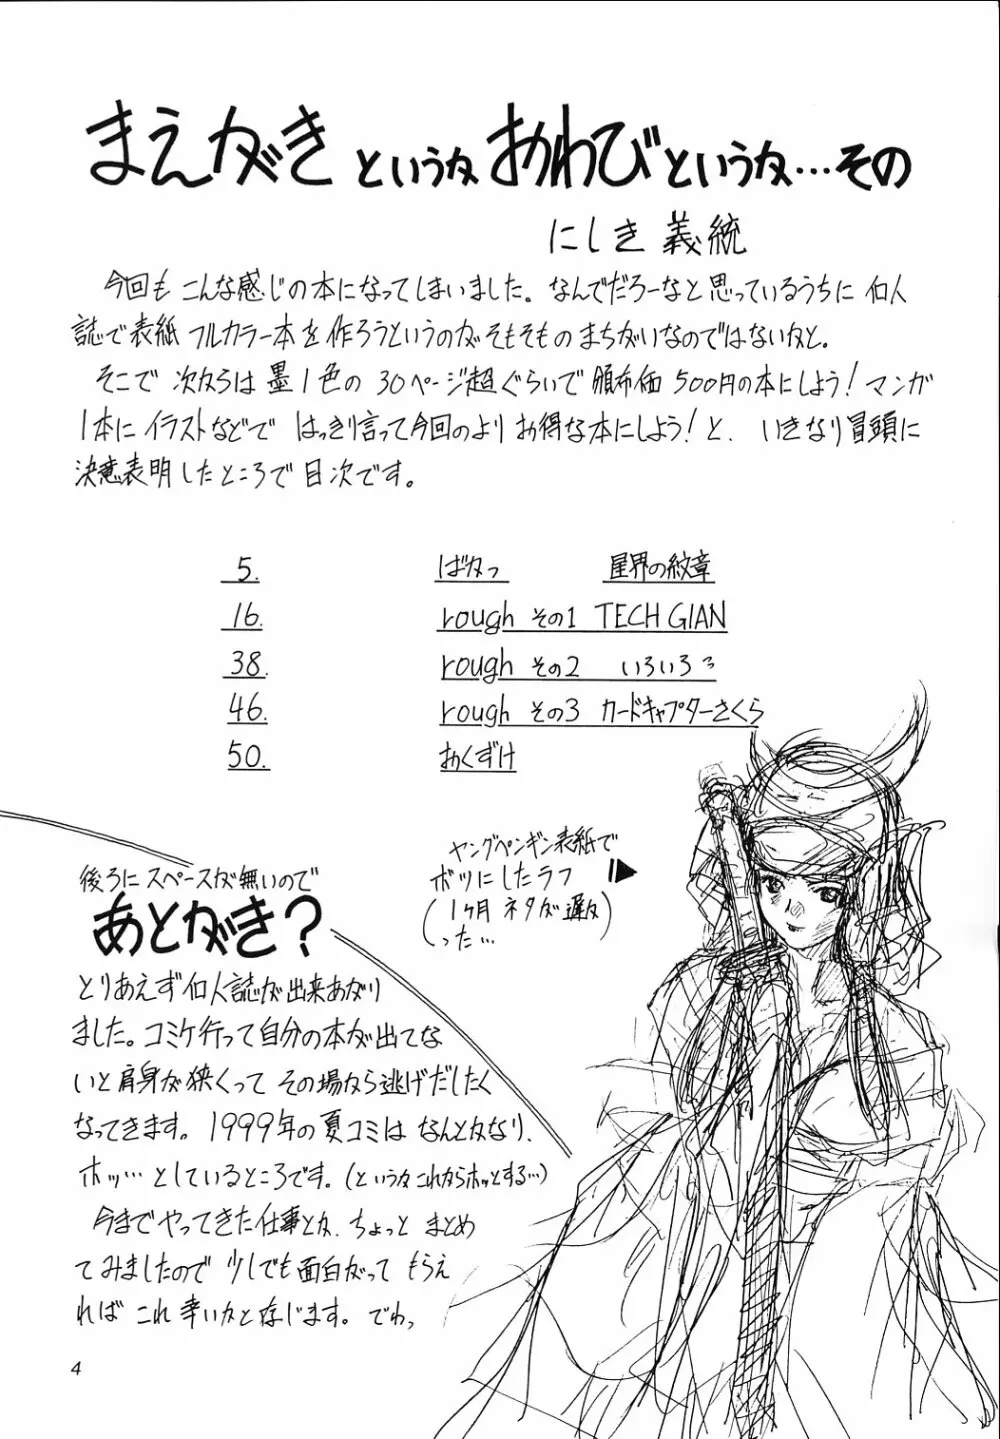 まえがきというかおわびというか…その
にしき義統
今回も こんな感じの本になってしまいました。なんでだろーなと思っているうちに 同人
誌で表紙 フルカラー本を作ろうというのがそもそものまちがいなのではないかと。
そこで 次からは 墨1色の 30ページ超ぐらいで 頒布価 500円の本にしよう! マンガ
1本に イラストなどで はっきり言って今回のより お得な本にしよう! と、いきなり冒頭に
決意表明したところで 目次です。
5. ばかっ 星界の紋章
16. rough その1 TECH GIAN
38. rough その2 いろいろ
46. rough その3 カードキャプターさくら
50. おくずけ
ヤングペンギン表紙で
ボツにしたラフ
(1ヶ月 ネタが遅か
った…)
後ろに スペースが無いので
あとがき?
とりあえず 同人誌が出来あがり
ました。コミケ行って自分の本が出てな
いと肩身が狭くって その場から逃げだしたく
なってきます。1999年の夏コミは なんとかなり、
ホッ…としているところです。(というか これからホッとする…)
今までやってきた仕事とか、ちょっと まとめ
てみましたので 少しでも面白がって もらえ
れば これ幸いかと存じます。でわっ
4